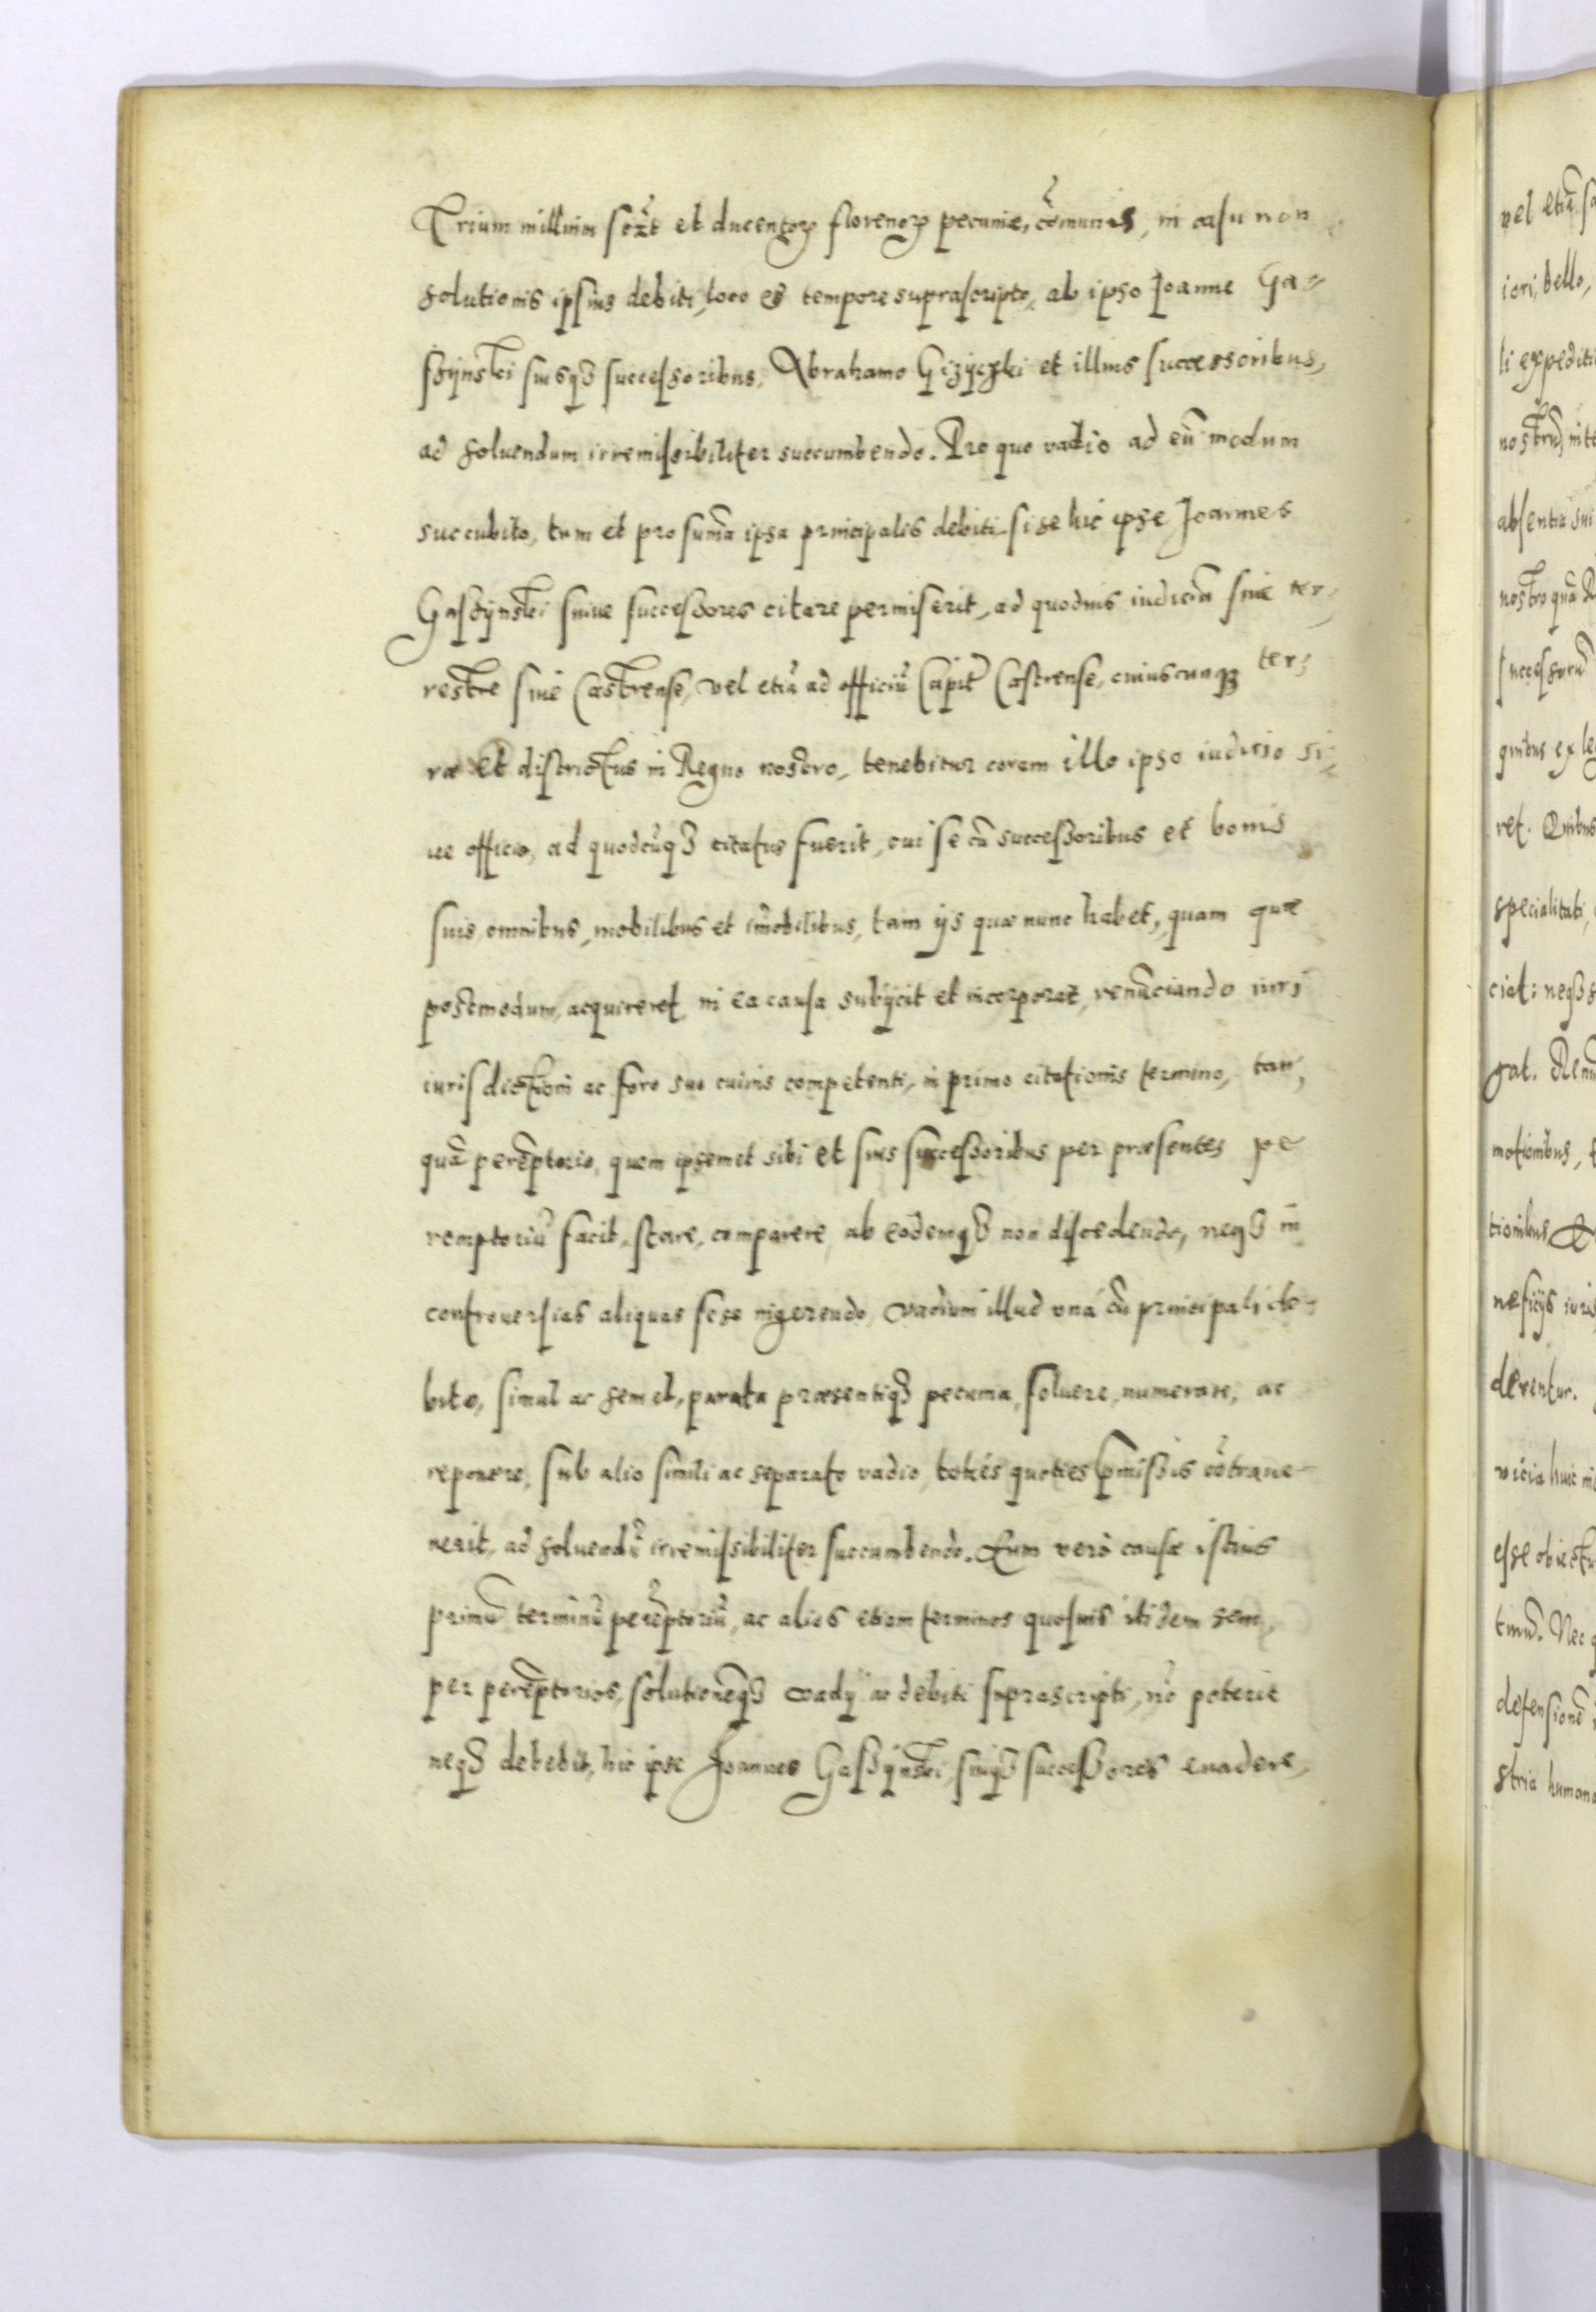 Trium millium sex̃t et ducentoꝝ florenoꝝ pecuniæ, cõmunis, in casu non
solutionis ipsius debiti, loco et tempore suprascripto, ab ipso Joanne Ga⸗
szÿnski suisqꝫ successoribus, Abrahamo Gizÿczki et illius successoribus,
ad soluendum irremissibiliter succumbendo. Pro quo vadio ad eũ modum
succubito, tum et pro sum̃a ipsa principalis debiti si se hic ipse Joannes
Gaszÿnski suiue successores citare permiserit, ad quoduis iudiciũ siue ter⸗
restre siue Castrense, vel etiã ad officiũ Capit̃ Castrense, cuiuscunqꝫ ter⸗
ræ et districtus in Regno nostro, tenebitur coram illo ipso iuditio si⸗
ue officio, ad quodcũqꝫ citatus fuerit, cui se cũ successoribus et bonis
suis omnibus, mobilibus et im̃obilibus, tam ijs quæ nunc habet, quam quæ
postmodum acquireret, in ea causa subijcit et incorporat, renũciando iuri
iurisdictioni ac foro suo cuiuis competenti, in primo citationis termino, tan⸗
quã perẽptorio, quem ipsemet sibi et suis successoribus per præsentes pe
remptoriũ facit, stare, comparere, ab eodemqꝫ non discedendo, neqꝫ in
controuersias aliquas sese ingerendo, vadium illud vnà cũ principali de⸗
bito, simul ac semel, parata præsentiqꝫ pecunia, soluere, numerare, ac
reponere, sub alio simili ac separato vadio, toties quoties p̃missis cõtraue⸗
nerit, ad soluendũ irremissibiliter succumbendo. Eum verò causæ istius
primũ terminũ perẽptoriũ, ac alios etiam terminos quosuis itidem sem⸗
per perẽptorios, solutionẽqꝫ vadij ac debiti suprascripti, nõ poterit
neqꝫ debebit, hic ipse Joannes Gaszÿnski, suiqꝫ successores euadere,
vel etiã
iori, bello,
absentia sui
specialitati
ciat: neqꝫ
gat.
motionibus,
tionibus
neficijs
derentur.
tiuũ. Nec
defensionẽ
stria humana